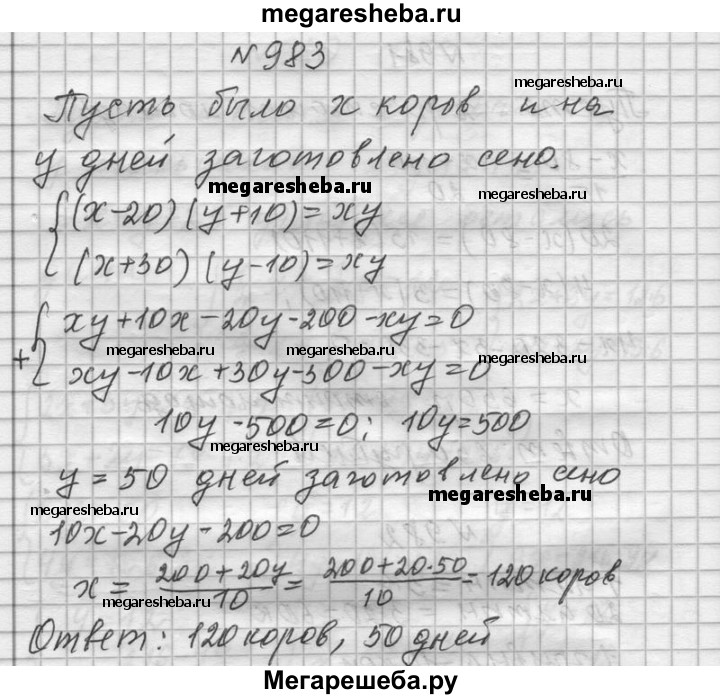 Мегарешеба.ру
megaresheba.ru
№983
megaresheba.ru
Пусть было x коров и на
y дней заготовлено сено.
megaresheba.ru megaresheba.ru
{ (x-20)(y+10)=xy
(x+30)(y-10)=xy
+ { xy+10x-20y-200-xy=0
megaresheba.ru megaresheba.ru megaresheba.ru
xy-10x+30y-300-xy=0
10y-500=0; 10y=500
megaresheba.ru megaresheba.ru
y=50 дней заготовлено сено
megaresheba.ru
megaresheba.ru
10x-20y-200=0
megaresheba.ru
x = (200+20y)/10 = (200+20·50)/10 = 120 коров
megaresheba.ru megaresheba.ru
Ответ: 120 коров, 50 дней
Мегарешеба.ру